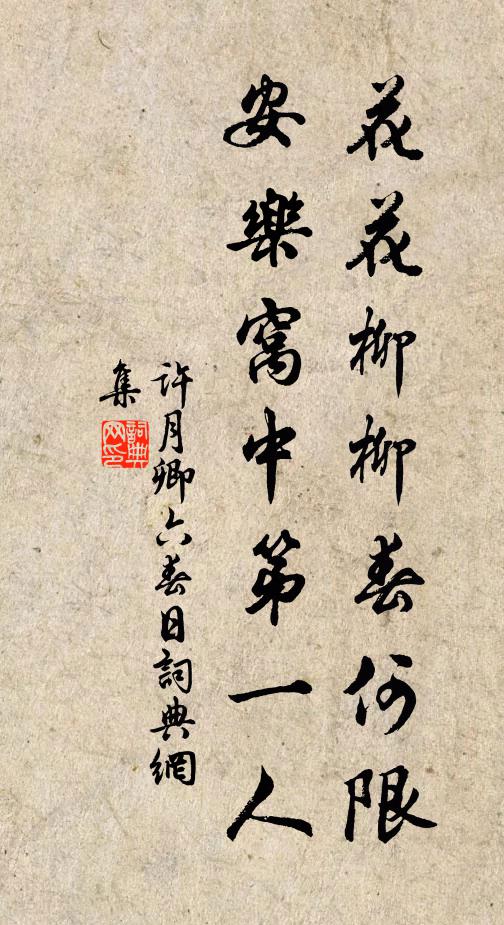 花花柳柳春何限
安樂窩中第一人
許月卿六春日詞典網
集
詞典
网印